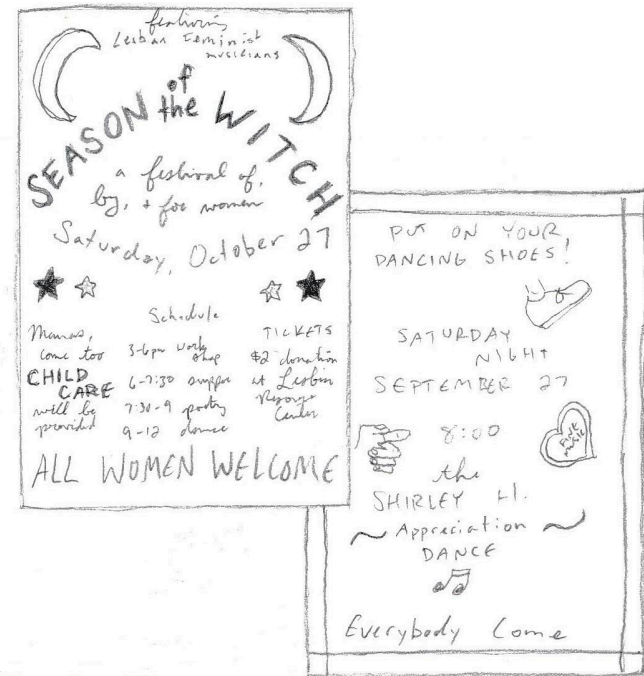 featuring
Lesbian Feminist
musicians
SEASON of the WITCH
a festival of,
by, + for women
Saturday, October 27
Schedule
Mamas,
come too
CHILD
CARE
will be
provided
3-6pm work
shop
6-7:30 supper
7:30-9 poetry
9-12 dance
TICKETS
$2 donation
at Lesbian
Resource
Center
ALL WOMEN WELCOME
PUT ON YOUR
DANCING SHOES!
SATURDAY
NIGHT
SEPTEMBER 27
8:00
LIVE
MUSIC
the
SHIRLEY H.
Appreciation
DANCE
Everybody Come